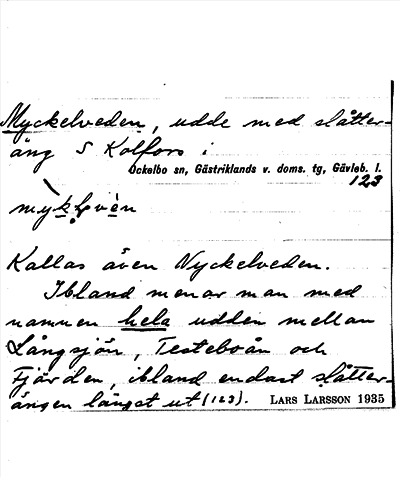 Myckelveden, udde med slåtter-
äng S Kolfors i
Ockelbo sn, Gästriklands v. doms. tg, Gävleb. l.
123
Kallas även Nyckelveden.
Ibland menar man med
namnen hela udden mellan
Långsjön, Testeboån och
Fjärden, ibland endast slåtter-
ängen längst ut (123). LARS LARSSON 1935